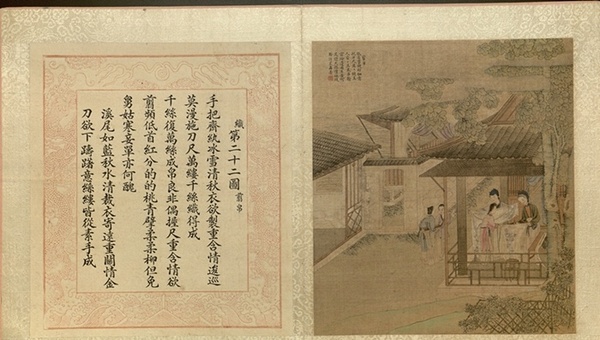 織第二十二圖 剪帛
手把齋紈冰雪清秋衣欲製重含情逡巡
莫漫施刀尺萬縷千絲織得成
千絲復萬絲成帛良非偶握尺重含情欲
剪頻低首紅分的的桃青擘柔柔柳但免
舅姑寒妾單亦何醜
溪尾如藍秋水清裁衣寄遠重關情金
刀欲下躊躇意絲縷皆從素手成